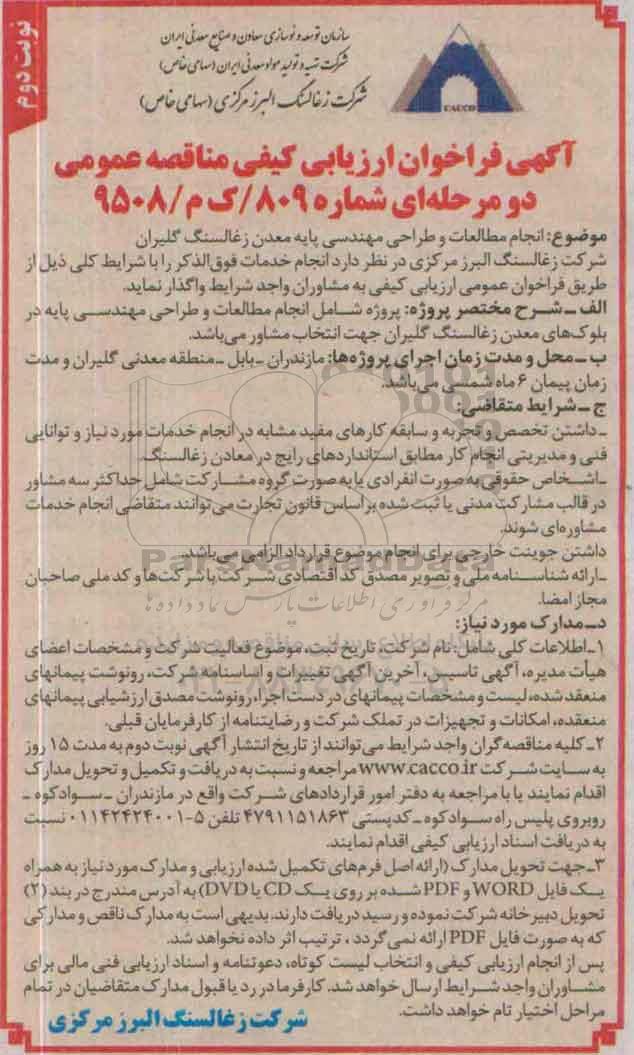 نوبت دوم
سازمان توسعه و نوسازی معادن و صنایع معدنی ایران
شرکت تهیه و تولید مواد معدنی ایران (سهامی خاص)
شرکت زغالسنگ البرز مرکزی (سهامی خاص)
CACCO
آگهی فراخوان ارزیابی کیفی مناقصه عمومی
دو مرحله‌ای شماره ۸۰۹/ک م/۹۵۰۸
موضوع: انجام مطالعات و طراحی مهندسی پایه معدن زغالسنگ گلیران
شرکت زغالسنگ البرز مرکزی در نظر دارد انجام خدمات فوق‌الذکر را با شرایط کلی ذیل از
طریق فراخوان عمومی ارزیابی کیفی به مشاوران واجد شرایط واگذار نماید.
الف ـ شرح مختصر پروژه: پروژه شامل انجام مطالعات و طراحی مهندسی پایه در
بلوک‌های معدن زغالسنگ گلیران جهت انتخاب مشاور می‌باشد.
ب ـ محل و مدت زمان اجرای پروژه‌ها: مازندران ـ بابل ـ منطقه معدنی گلیران و مدت
زمان پیمان ۶ ماه شمسی می‌باشد.
ج ـ شرایط متقاضی:
ـ داشتن تخصص و تجربه و سابقه کارهای مفید مشابه در انجام خدمات مورد نیاز و توانایی
فنی و مدیریتی انجام کار مطابق استانداردهای رایج در معادن زغالسنگ.
ـ اشخاص حقوقی به صورت انفرادی یا به صورت گروه مشارکت شامل حداکثر سه مشاور
در قالب مشارکت مدنی یا ثبت شده براساس قانون تجارت می‌توانند متقاضی انجام خدمات
مشاوره‌ای شوند.
داشتن جوینت خارجی برای انجام موضوع قرارداد الزامی می‌باشد.
ParsNamadData
ـ ارائه شناسنامه ملی و تصویر مصدق کد اقتصادی شرکت یا شرکت‌ها و کد ملی صاحبان
مجاز امضا.
مرکز فرآوری اطلاعات پارس نماد داده‌ها
د ـ مدارک مورد نیاز:
۱ـ اطلاعات کلی شامل: نام شرکت، تاریخ ثبت، موضوع فعالیت شرکت و مشخصات اعضای
هیأت مدیره، آگهی تاسیس، آخرین آگهی تغییرات و اساسنامه شرکت، رونوشت پیمانهای
منعقد شده، لیست و مشخصات پیمانهای در دست اجرا، رونوشت مصدق ارزشیابی پیمانهای
منعقده، امکانات و تجهیزات در تملک شرکت و رضایتنامه از کارفرمایان قبلی.
۲ـ کلیه مناقصه‌گران واجد شرایط می‌توانند از تاریخ انتشار آگهی نوبت دوم به مدت ۱۵ روز
به سایت شرکت www.cacco.ir مراجعه و نسبت به دریافت و تکمیل و تحویل مدارک
اقدام نمایند یا با مراجعه به دفتر امور قراردادهای شرکت واقع در مازندران ـ سوادکوه ـ
روبروی پلیس راه سوادکوه ـ کدپستی ۴۷۹۱۱۵۱۸۶۳ تلفن ۵-۰۱۱۴۲۴۲۴۰۰۱ نسبت
به دریافت اسناد ارزیابی کیفی اقدام نمایند.
۳ـ جهت تحویل مدارک (ارائه اصل فرم‌های تکمیل شده ارزیابی و مدارک مورد نیاز به همراه
یک فایل WORD و PDF شده بر روی یک CD یا DVD) به آدرس مندرج در بند (۲)
تحویل دبیرخانه شرکت نموده و رسید دریافت دارند. بدیهی است به مدارک ناقص و مدارکی
که به صورت فایل PDF ارائه نمی‌گردد، ترتیب اثر داده نخواهد شد.
پس از انجام ارزیابی کیفی و انتخاب لیست کوتاه، دعوتنامه و اسناد ارزیابی فنی مالی برای
مشاوران واجد شرایط ارسال خواهد شد. کارفرما در رد یا قبول مدارک متقاضیان در تمام
مراحل اختیار تام خواهد داشت.
شرکت زغالسنگ البرز مرکزی